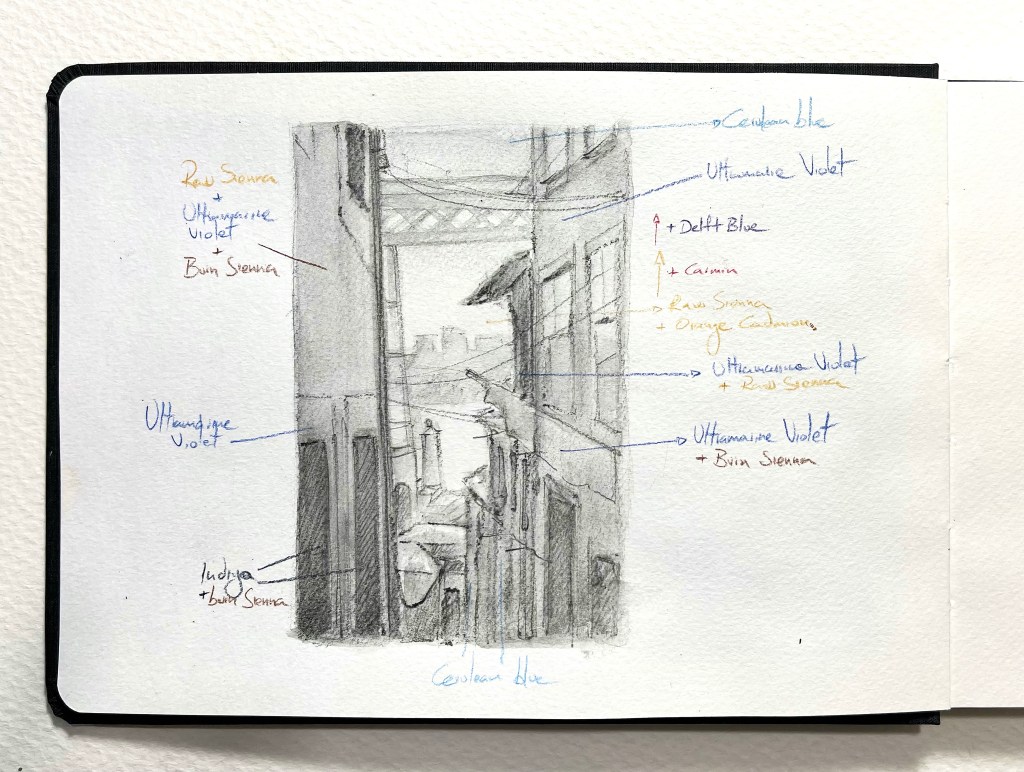 Cerulean blue
Ultramarine Violet
+ Delft Blue
+ Carmin
Raw Sienna
+ Orange Cadmium
Ultramarine Violet
+ Raw Sienna
Ultramarine Violet
+ Burn Sienna
Raw Sienna
+
Ultramarine
Violet
+
Burn Sienna
Ultramarine
Violet
Indigo
+ burn Sienna
Cerulean blue